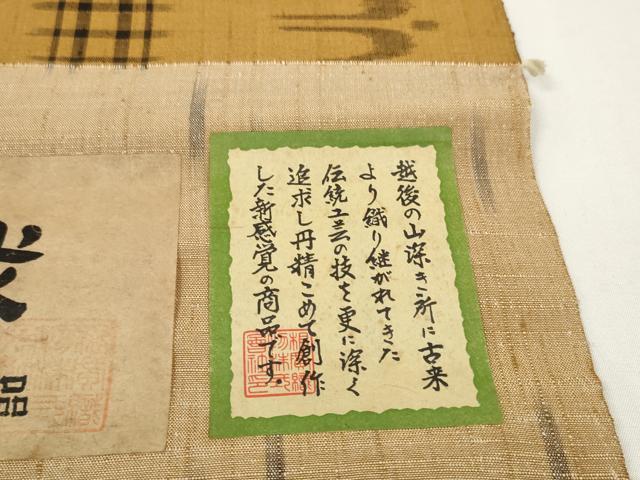 越後の山深き所に古来
より織り継がれてきた
伝統工芸の技を更に深く
追求し丹精こめて創作
した新感覚の商品です。
品